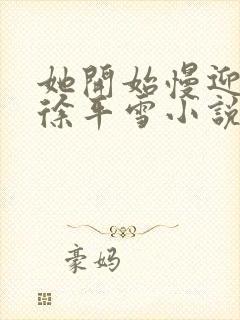 她開始慢迎
徐平雪小說
豪妈